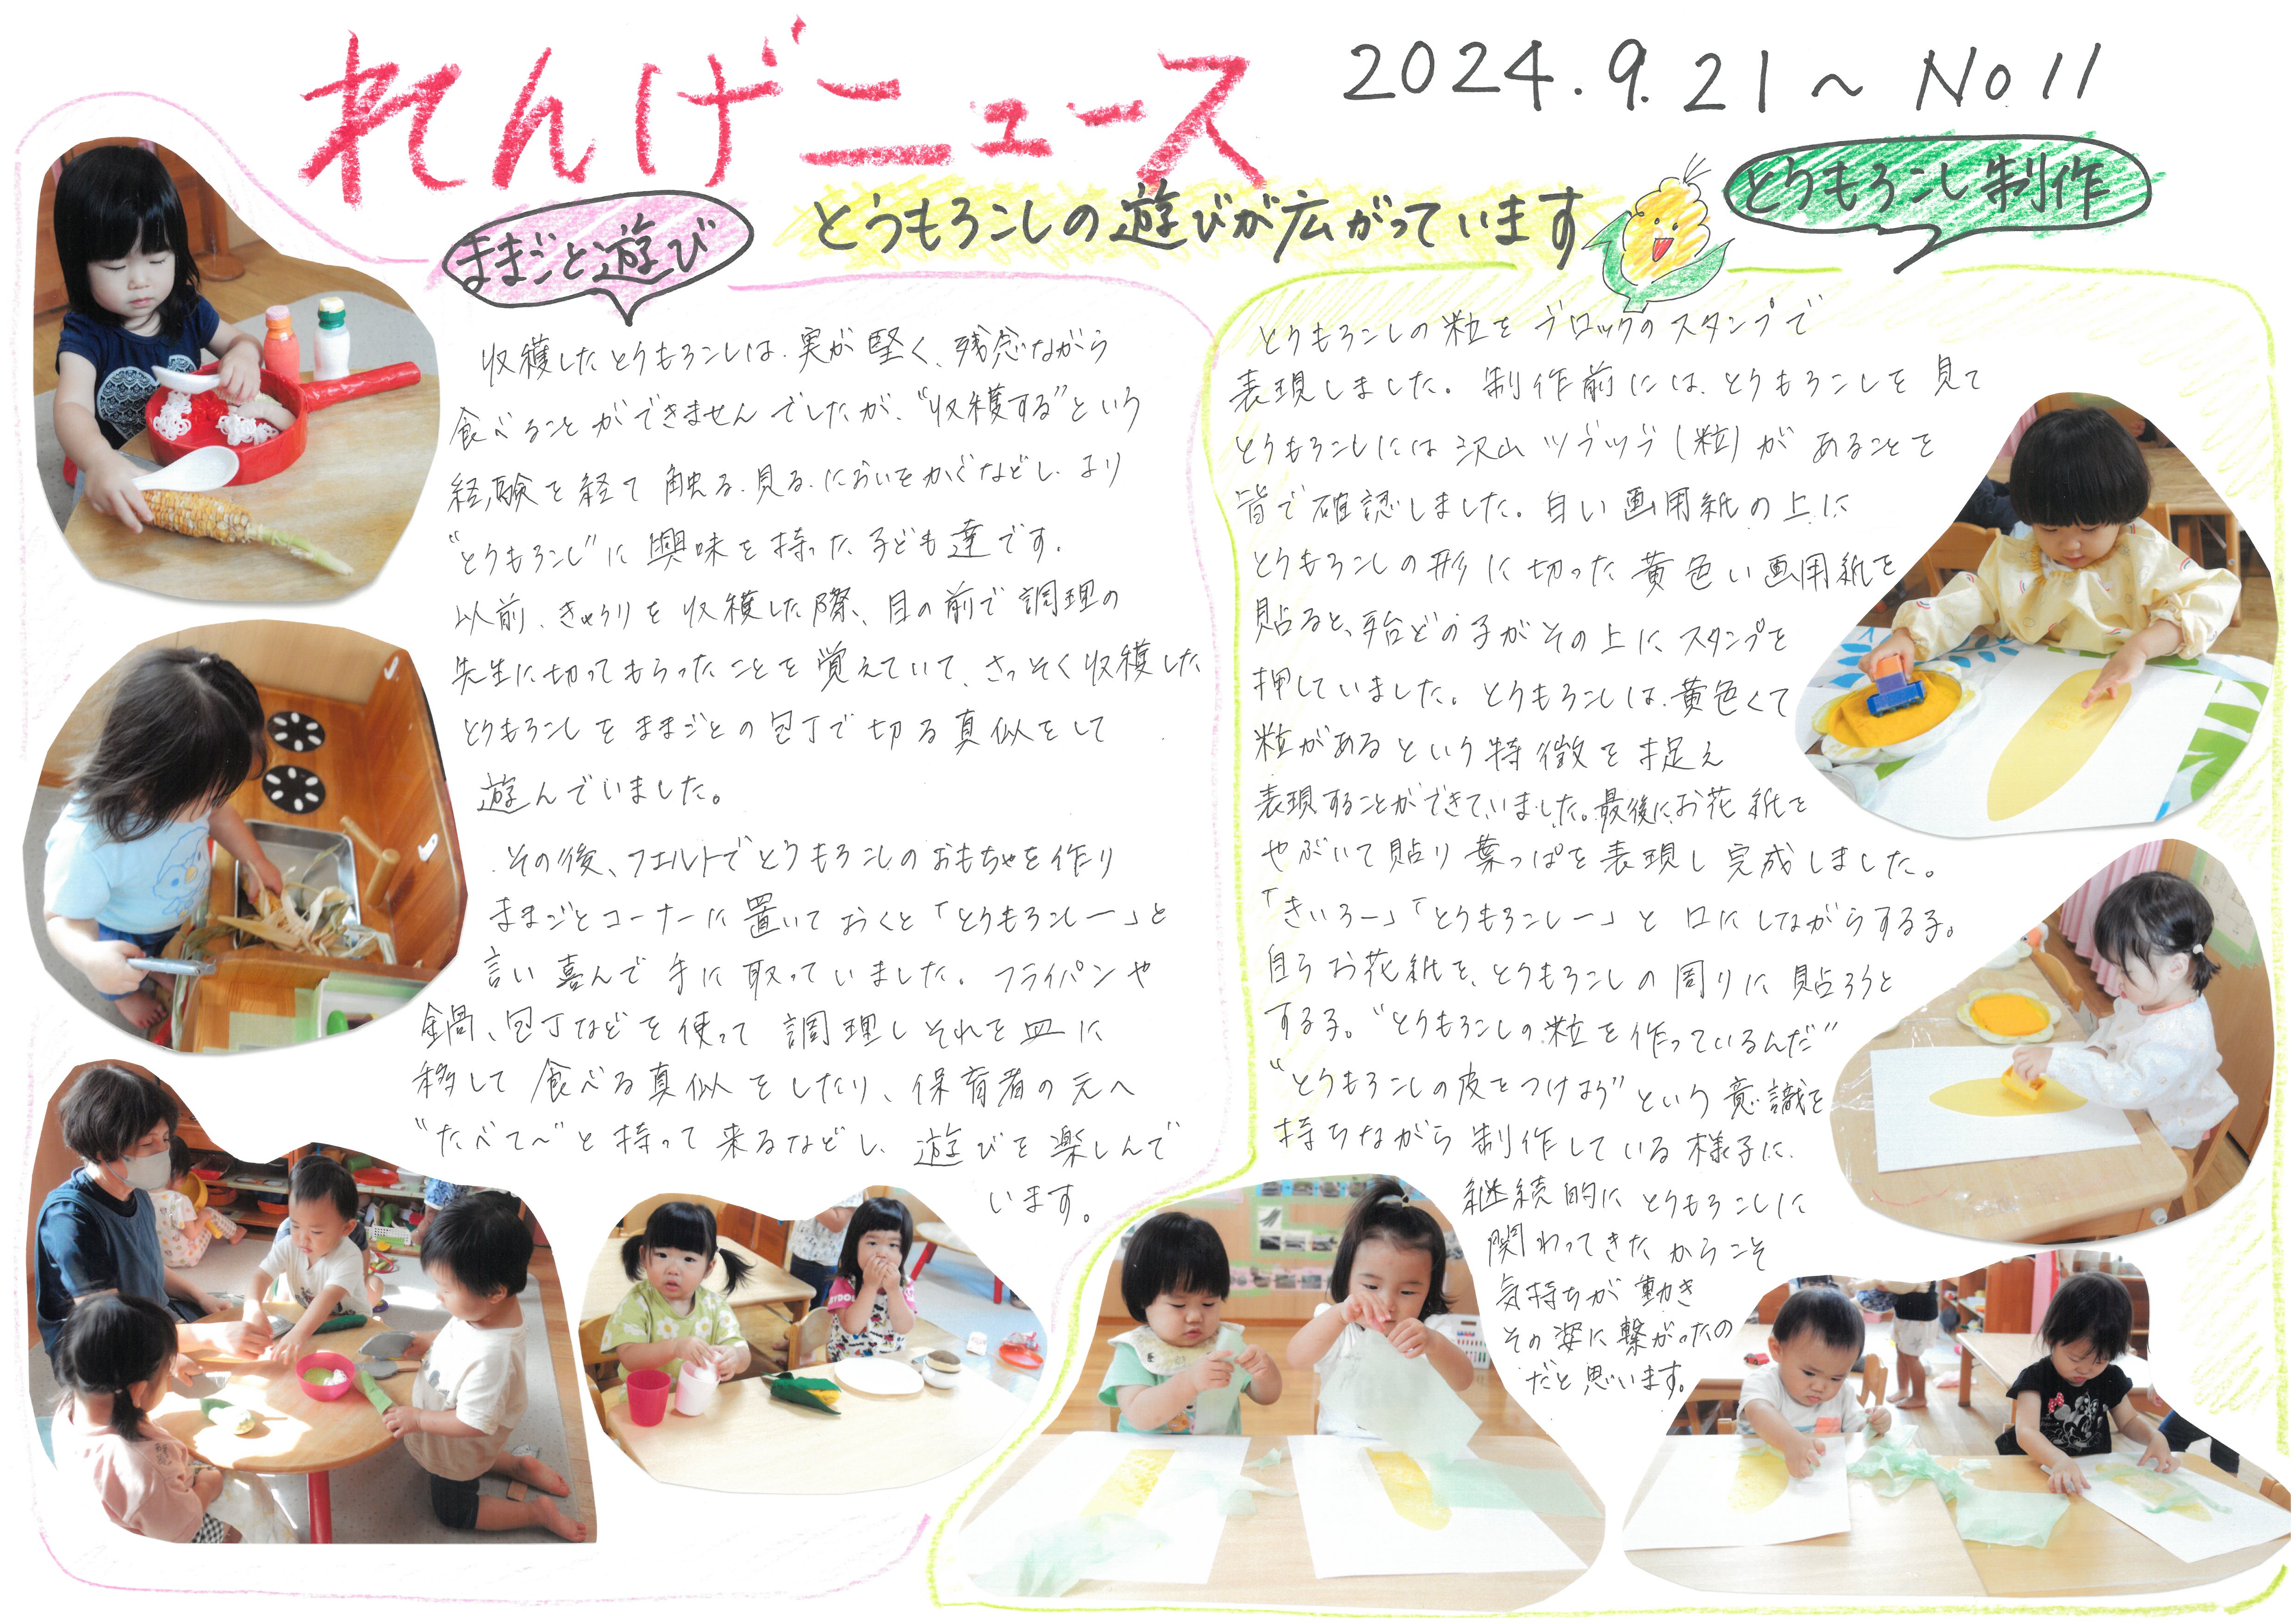 れんげニュース
2024.9.21～ No.11
とうもろこしの遊びが広がっています
ままごと遊び
収穫したとうもろこしは、実が堅く、残念ながら
食べることができませんでしたが、“収穫する”という
経験を経て触る、見る、においをかぐなどし、より
“とうもろこし”に興味を持った子ども達です。
以前、きゅうりを収穫した際、目の前で調理の
先生に切ってもらったことを覚えていて、さっそく収穫した
とうもろこしをままごとの包丁で切る真似をして
遊んでいました。
その後、フェルトでとうもろこしのおもちゃを作り
ままごとコーナーに置いておくと「とうもろこしー」と
言い喜んで手に取っていました。フライパンや
鍋、包丁などを使って調理しそれを皿に
移して食べる真似をしたり、保育者の元へ
“たべて～”と持って来るなどし、遊びを楽しんで
います。
とうもろこし制作
とうもろこしの粒をブロックのスタンプで
表現しました。制作前には、とうもろこしを見て
とうもろこしには沢山ツブツブ（粒）があることを
皆で確認しました。白い画用紙の上に
とうもろこしの形に切った黄色い画用紙を
貼ると、殆どの子がその上にスタンプを
押していました。とうもろこしは、黄色くて
粒があるという特徴を捉え
表現することができていました。最後に、お花紙を
やぶいて貼り葉っぱを表現し完成しました。
「きいろー」「とうもろこしー」と口にしながらする子。
自らお花紙を、とうもろこしの周りに貼ろうと
する子。“とうもろこしの粒を作っているんだ”
“とうもろこしの皮をつけよう”という意識を
持ちながら制作している様子に、
継続的にとうもろこしに
関わってきたからこそ
気持ちが動き
その姿に繋がったの
だと思います。